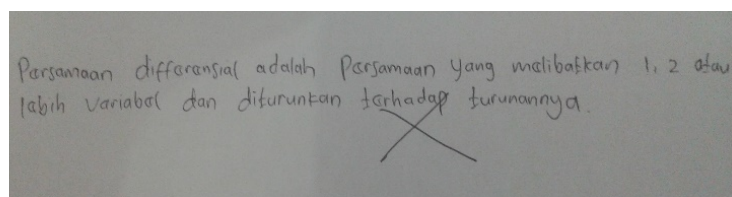 Persamaan differensial adalah Persamaan yang melibatkan 1, 2 atau
lebih variabel dan diturunkan terhadap turunannya.